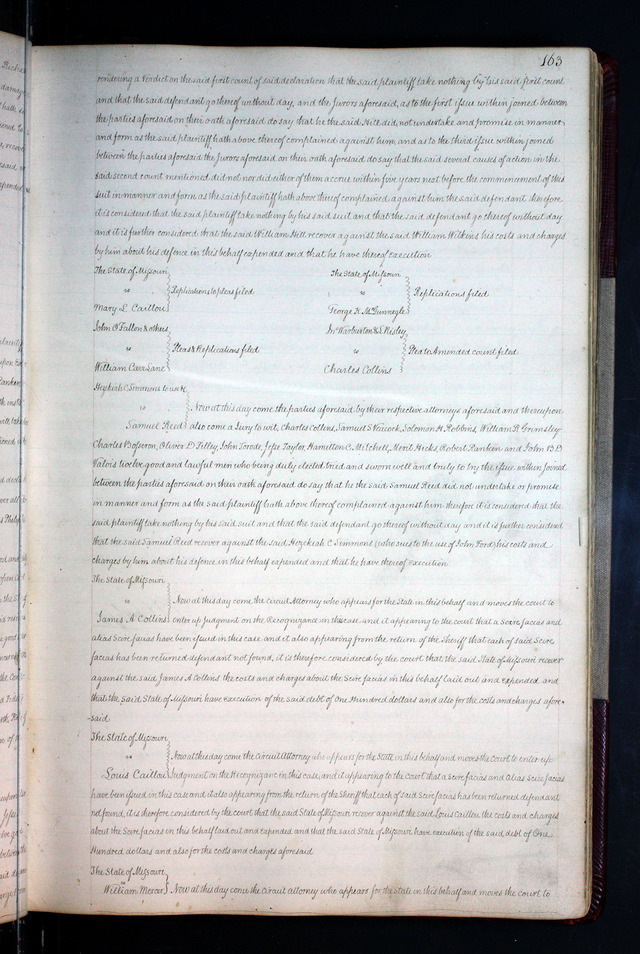 163
rendering a verdict on the said first count of said declaration that the said plaintiff take nothing by his said first count
and that the said defendant go thereof without day, and the Jurors aforesaid, as to the first issue within joined between
the parties aforesaid on their oath aforesaid do say that he the said Hill did not undertake and promise in manner
and form as the said plaintiff hath above thereof complained against him, and as to the third issue within joined
between the parties aforesaid the Jurors aforesaid on their oath aforesaid do say that the said several causes of action in the
said second count mentioned did not nor did either of them accrue within five years next before the commencement of this
suit in manner and form as the said plaintiff hath above thereof complained against him the said defendant therefore
it is considered that the said plaintiff take nothing by his said suit and that the said defendant go thereof without day
and it is further considered that the said William Hill recover against the said William Wilkins his costs and charges
by him about his defence in this behalf expended and that he have thereof execution
The State of Missouri
vs Replications to pleas filed
Mary L Caillou
The State of Missouri
vs Replications filed
George K McGunnegle
John O'Fallon & others
vs Pleas & Replications filed
William Carr Lane
Jn Warburton & L Risley
vs Plea to Amended count filed
Charles Collins
Hezekiah C Simmons to use &c
vs Now at this day come the parties aforesaid by their respective attorneys aforesaid and thereupon
Samuel Reed also come a Jury to wit, Charles Collins, Samuel S Hancock, Solomon H Robbins, William R Grimsley
Charles Bosseron, Oliver D Filley, John Torode, Jesse Taylor, Hamilton C Mitchell, Merit Hicks, Robert Ranken and John B D
Valois twelve good and lawful men who being duly elected tried and sworn well and truly to try the issue within joined
between the parties aforesaid on their oath aforesaid do say that he the said Samuel Reed did not undertake or promise
in manner and form as the said plaintiff hath above thereof complained against him therefore it is considered that the
said plaintiff take nothing by his said suit and that the said defendant go thereof without day and it is further considered
that the said Samuel Reed recover against the said Hezekiah C Simmons (who sues to the use of John Ford) his costs and
charges by him about his defence in this behalf expended and that he have thereof execution
The State of Missouri
vs Now at this day come the Circuit Attorney who appears for the State in this behalf and moves the court to
James A Collins enter up judgment on the Recognizance in this case and it appearing to the court that a Scire facias and
alias Scire facias have been issued in this case and it also appearing from the return of the Sheriff that each of said Scire
facias has been returned defendant not found, it is therefore considered by the court that the said State of Missouri recover
against the said James A Collins the costs and charges about the Scire facias in this behalf laid out and expended and
that the said State of Missouri have execution of the said debt of One Hundred dollars and also for the costs and charges afore-
-said
The State of Missouri
vs Now at this day come the Circuit Attorney who appears for the State in this behalf and moves the Court to enter up
Louis Caillou Judgment on the Recognizance in this case, and it appearing to the Court that a Scire facias and alias Scire facias
have been issued in this case and it also appearing from the return of the Sheriff that each of said Scire facias has been returned defendant
not found, it is therefore considered by the court that the said State of Missouri recover against the said Louis Caillou the costs and charges
about the Scire facias in this behalf laid out and expended and that the said State of Missouri have execution of the said debt of One
Hundred dollars and also for the costs and charges aforesaid
The State of Missouri
vs
William Mercer Now at this day come the Circuit Attorney who appears for the State in this behalf and moves the court to